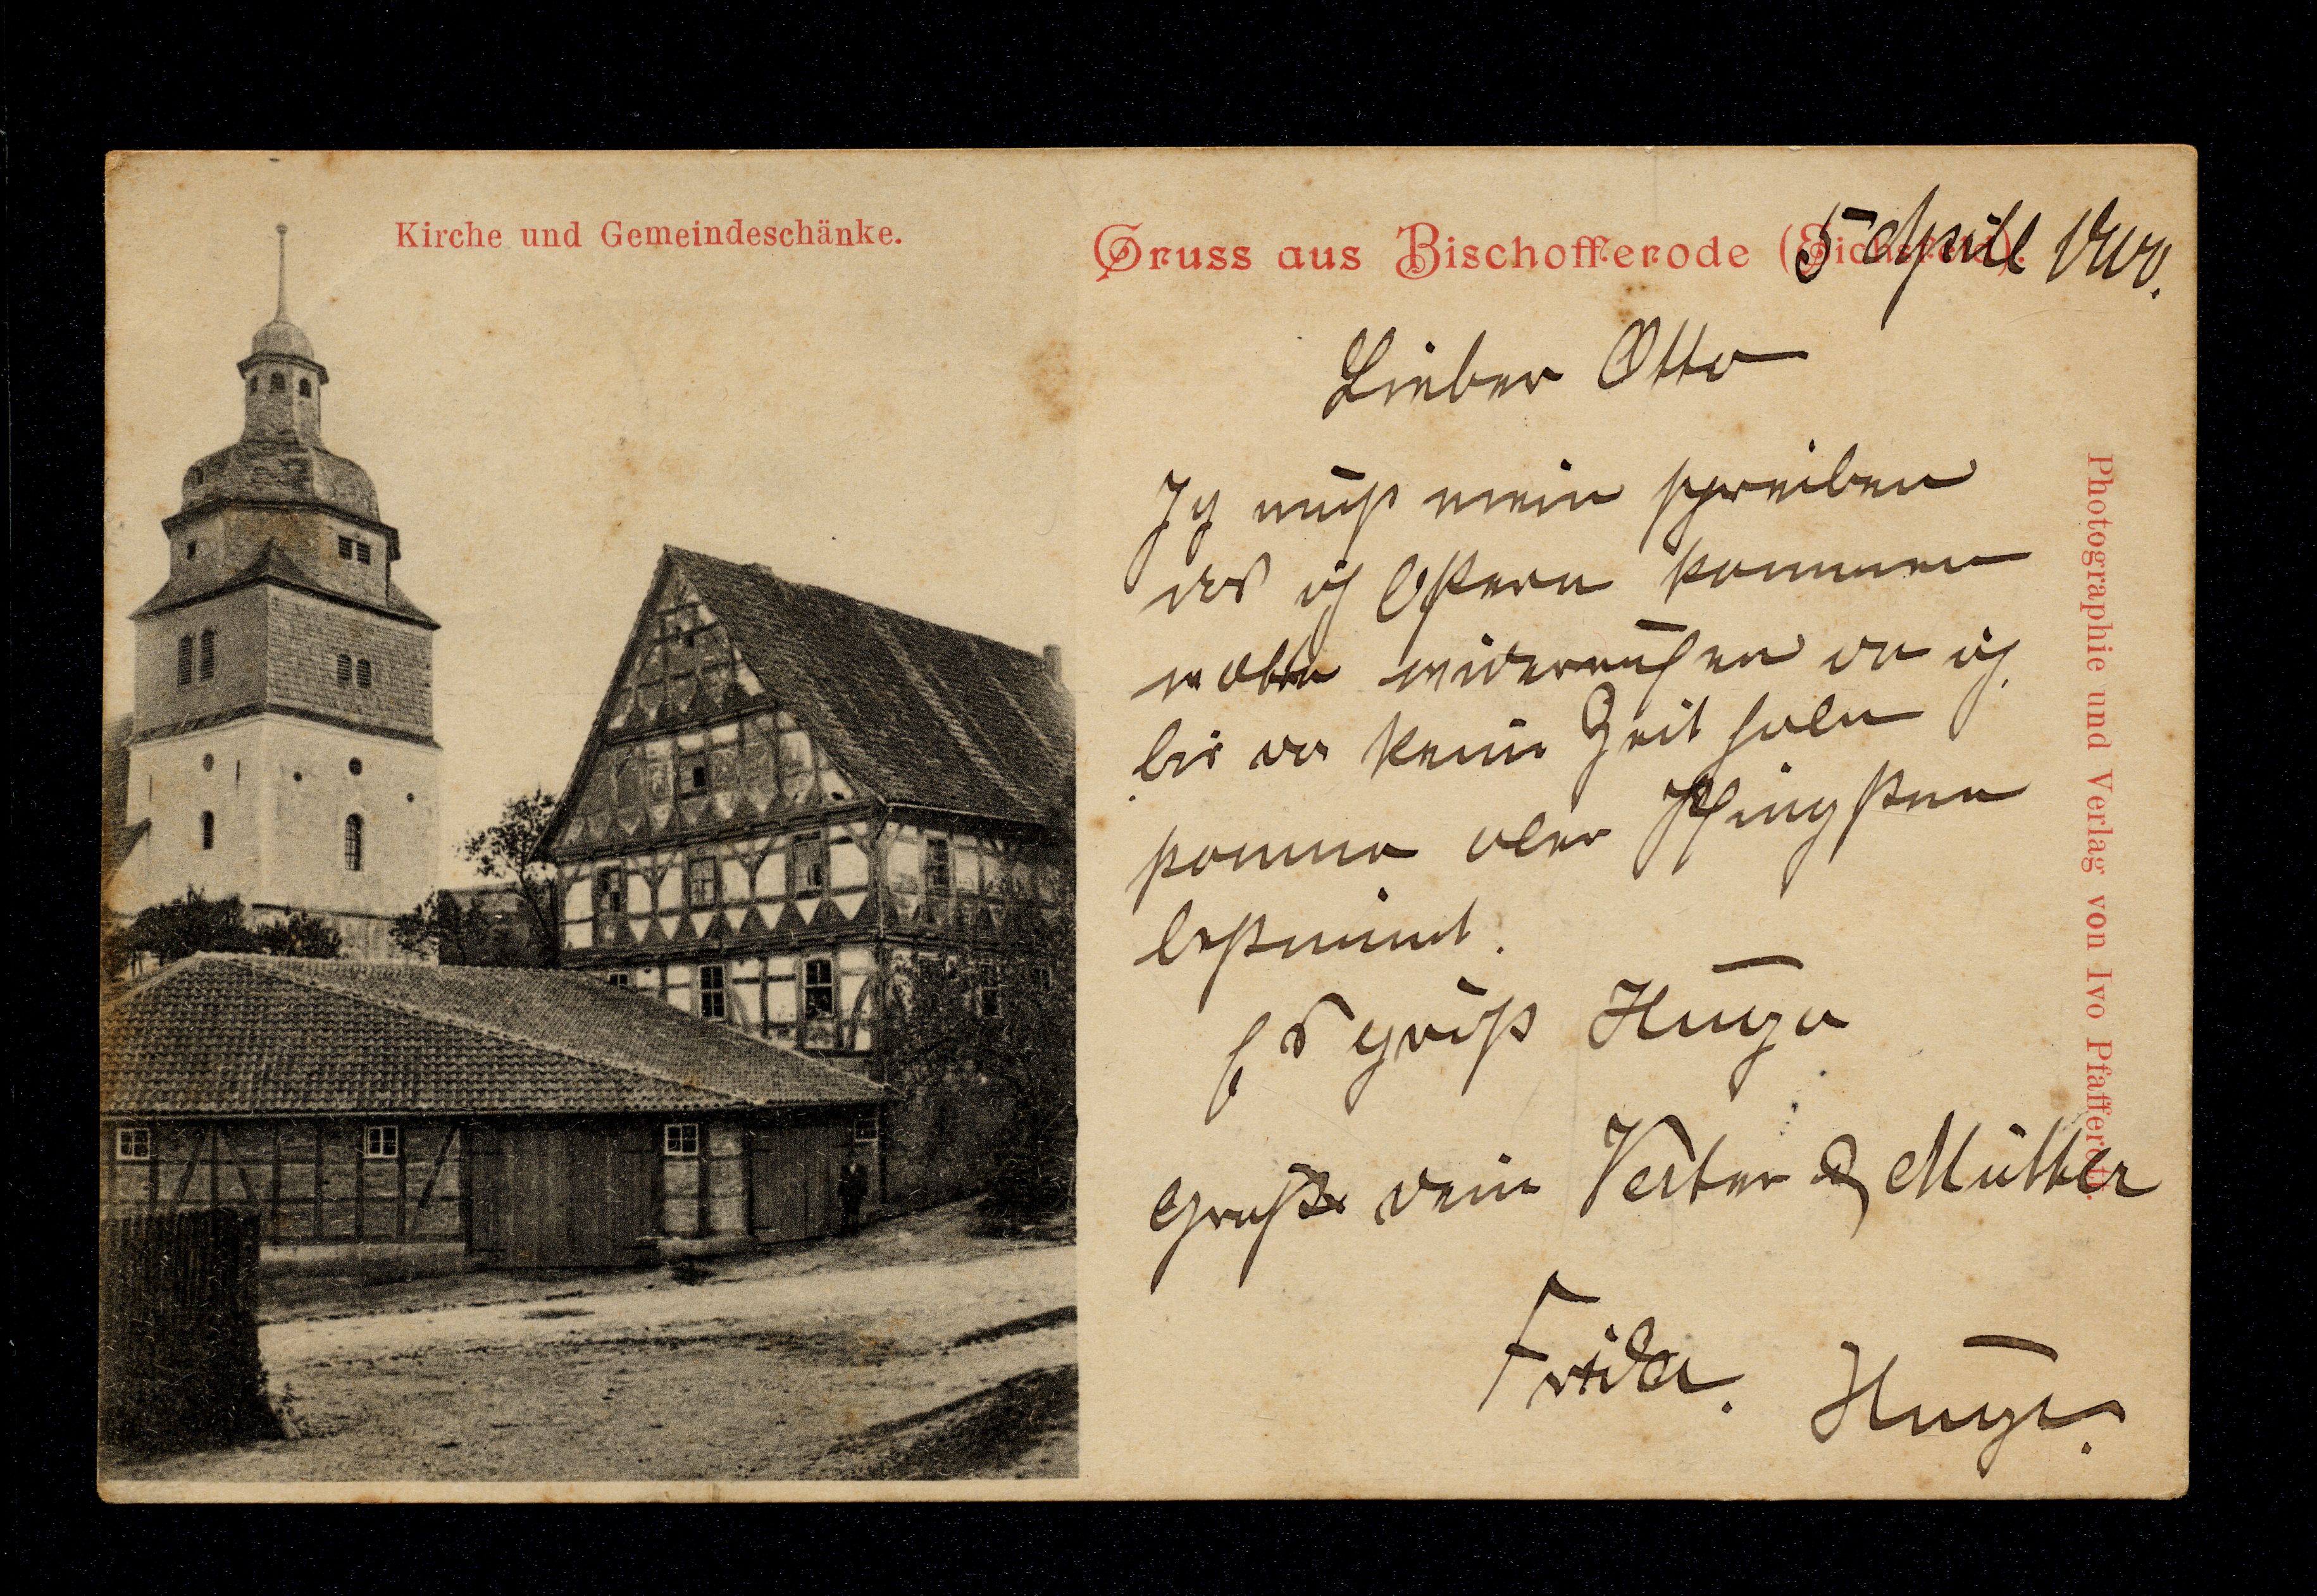 Kirche und Gemeindeschänke.
Gruss aus Bischofferode (Eichsfeld).
5 April
Lieber Otto
Ich muß mein schreiben
das ich Ostern kommen
widerrufen da ich
bis da keine Zeit habe
komme aber Pfingsten
bestimmt.
Es grüßt Hugo
Gruß dein Vater & Mutter
Frida. Hugo.
Photographie und Verlag von Ivo Pfafferott.